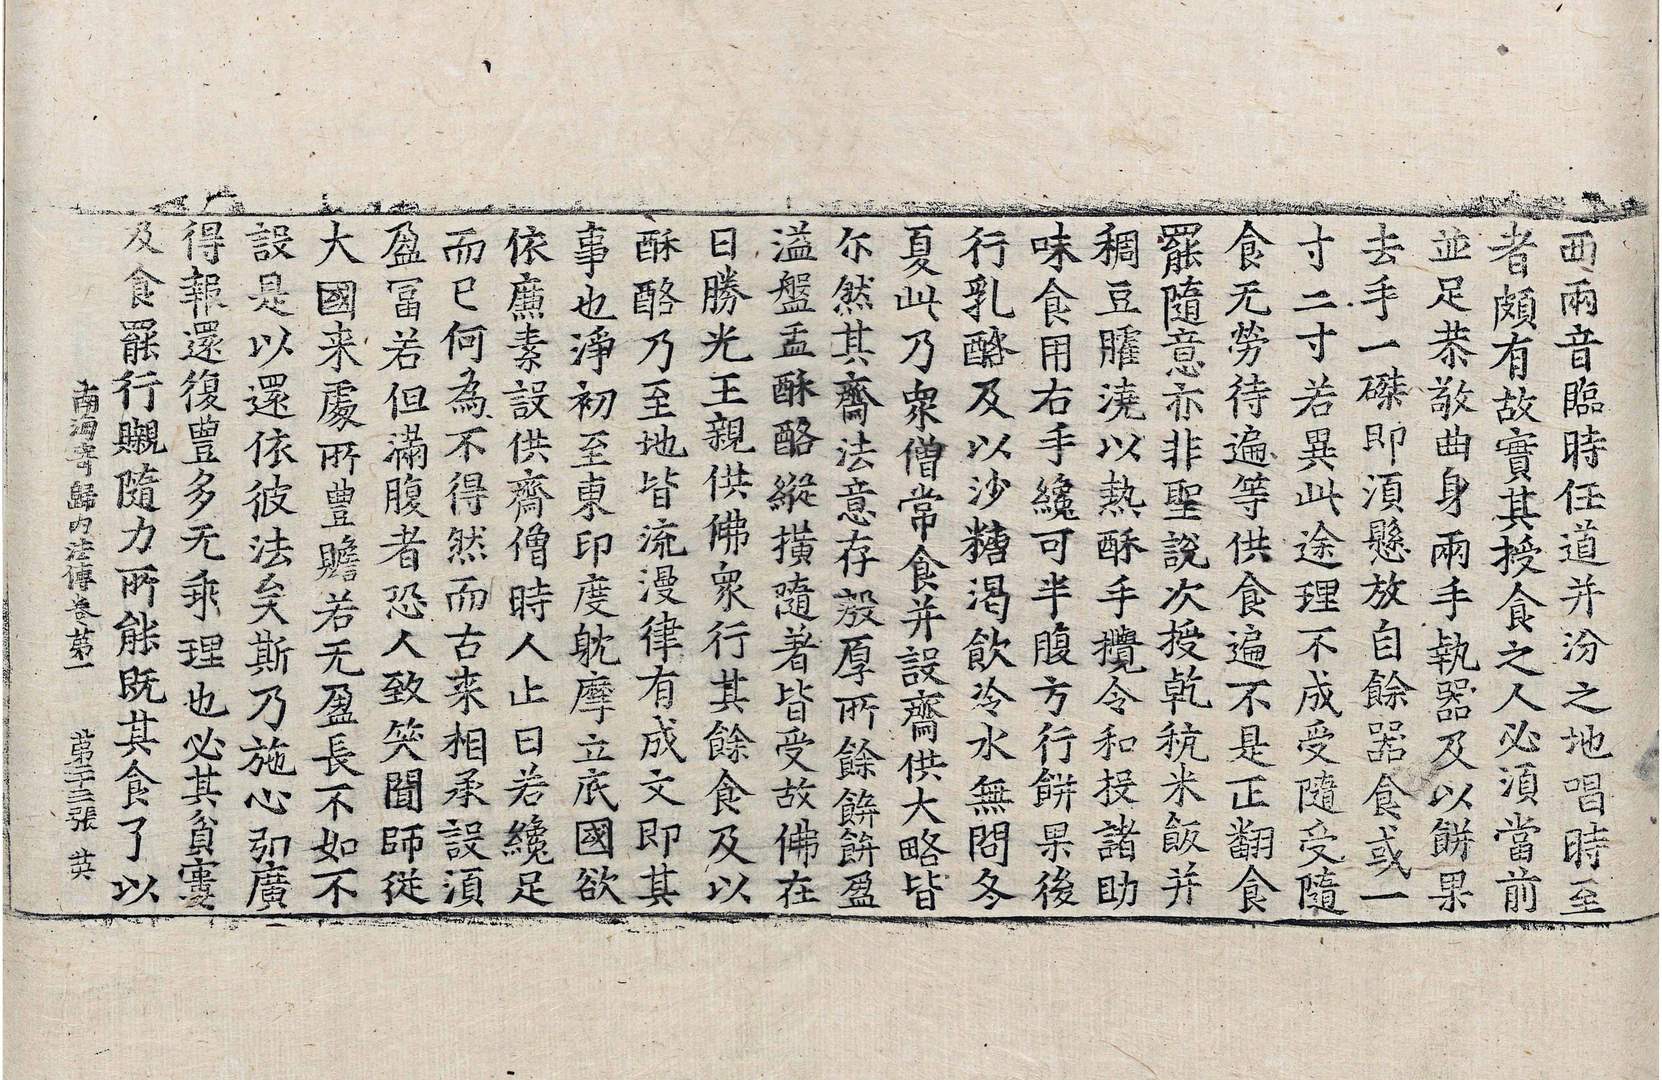 西兩音臨時任道并汾之地唱時至
者頗有故實其授食之人必湏當前
並足恭敬曲身兩手執器及以餅果
去手一磔即湏懸放自餘器食或一
寸二寸若異此途理不成受隨受隨
食无勞待遍等供食遍不是正翻食
罷隨意亦非聖說次授乾秔米飯并
稠豆臛澆以熱酥手攪令和投諸助
味食用右手纔可半腹方行餅果後
行乳酪及以沙糖渴飲冷水無問冬
夏此乃衆僧常食并設齋供大略皆
尒然其齋法意存殷厚所餘餅餅盈
溢盤盂酥酪縱撗隨著皆受故佛在
日勝光王親供佛衆行其餘食及以
酥酪乃至地皆流漫律有成文即其
事也淨初至東印度躭摩立底國欲
依廉素設供齋僧時人止曰若纔足
而已何為不得然而古来相承設湏
盈冨若但滿腹者恐人致笑聞師從
大國来處所豊贍若无盈長不如不
設是以還依彼法矣斯乃施心弘廣
得報還復豊多无乖理也必其貧窶
及食罷行嚫隨力所能既其食了以
南海寄歸內法傳卷第一 第二十三張 英